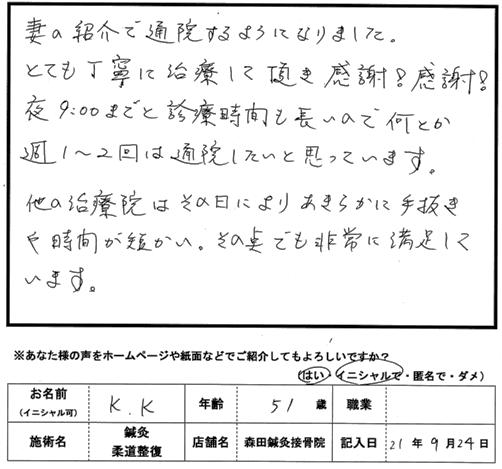 妻の紹介で通院するようになりました。
とても丁寧に治療して頂き感謝!感謝!
夜9:00までと診療時間も長いので何とか
週1〜2回は通院したいと思っています。
他の治療院はその日によりあきらかに手抜き
や時間が短かい。その点でも非常に満足して
います。
※あなた様の声をホームページや紙面などでご紹介してもよろしいですか?
(はい・イニシャルで・匿名で・ダメ)
お名前 (イニシャル可) K.K 年齢 51歳 職業
施術名 鍼灸 柔道整復 店舗名 森田鍼灸接骨院 記入日 21年9月24日